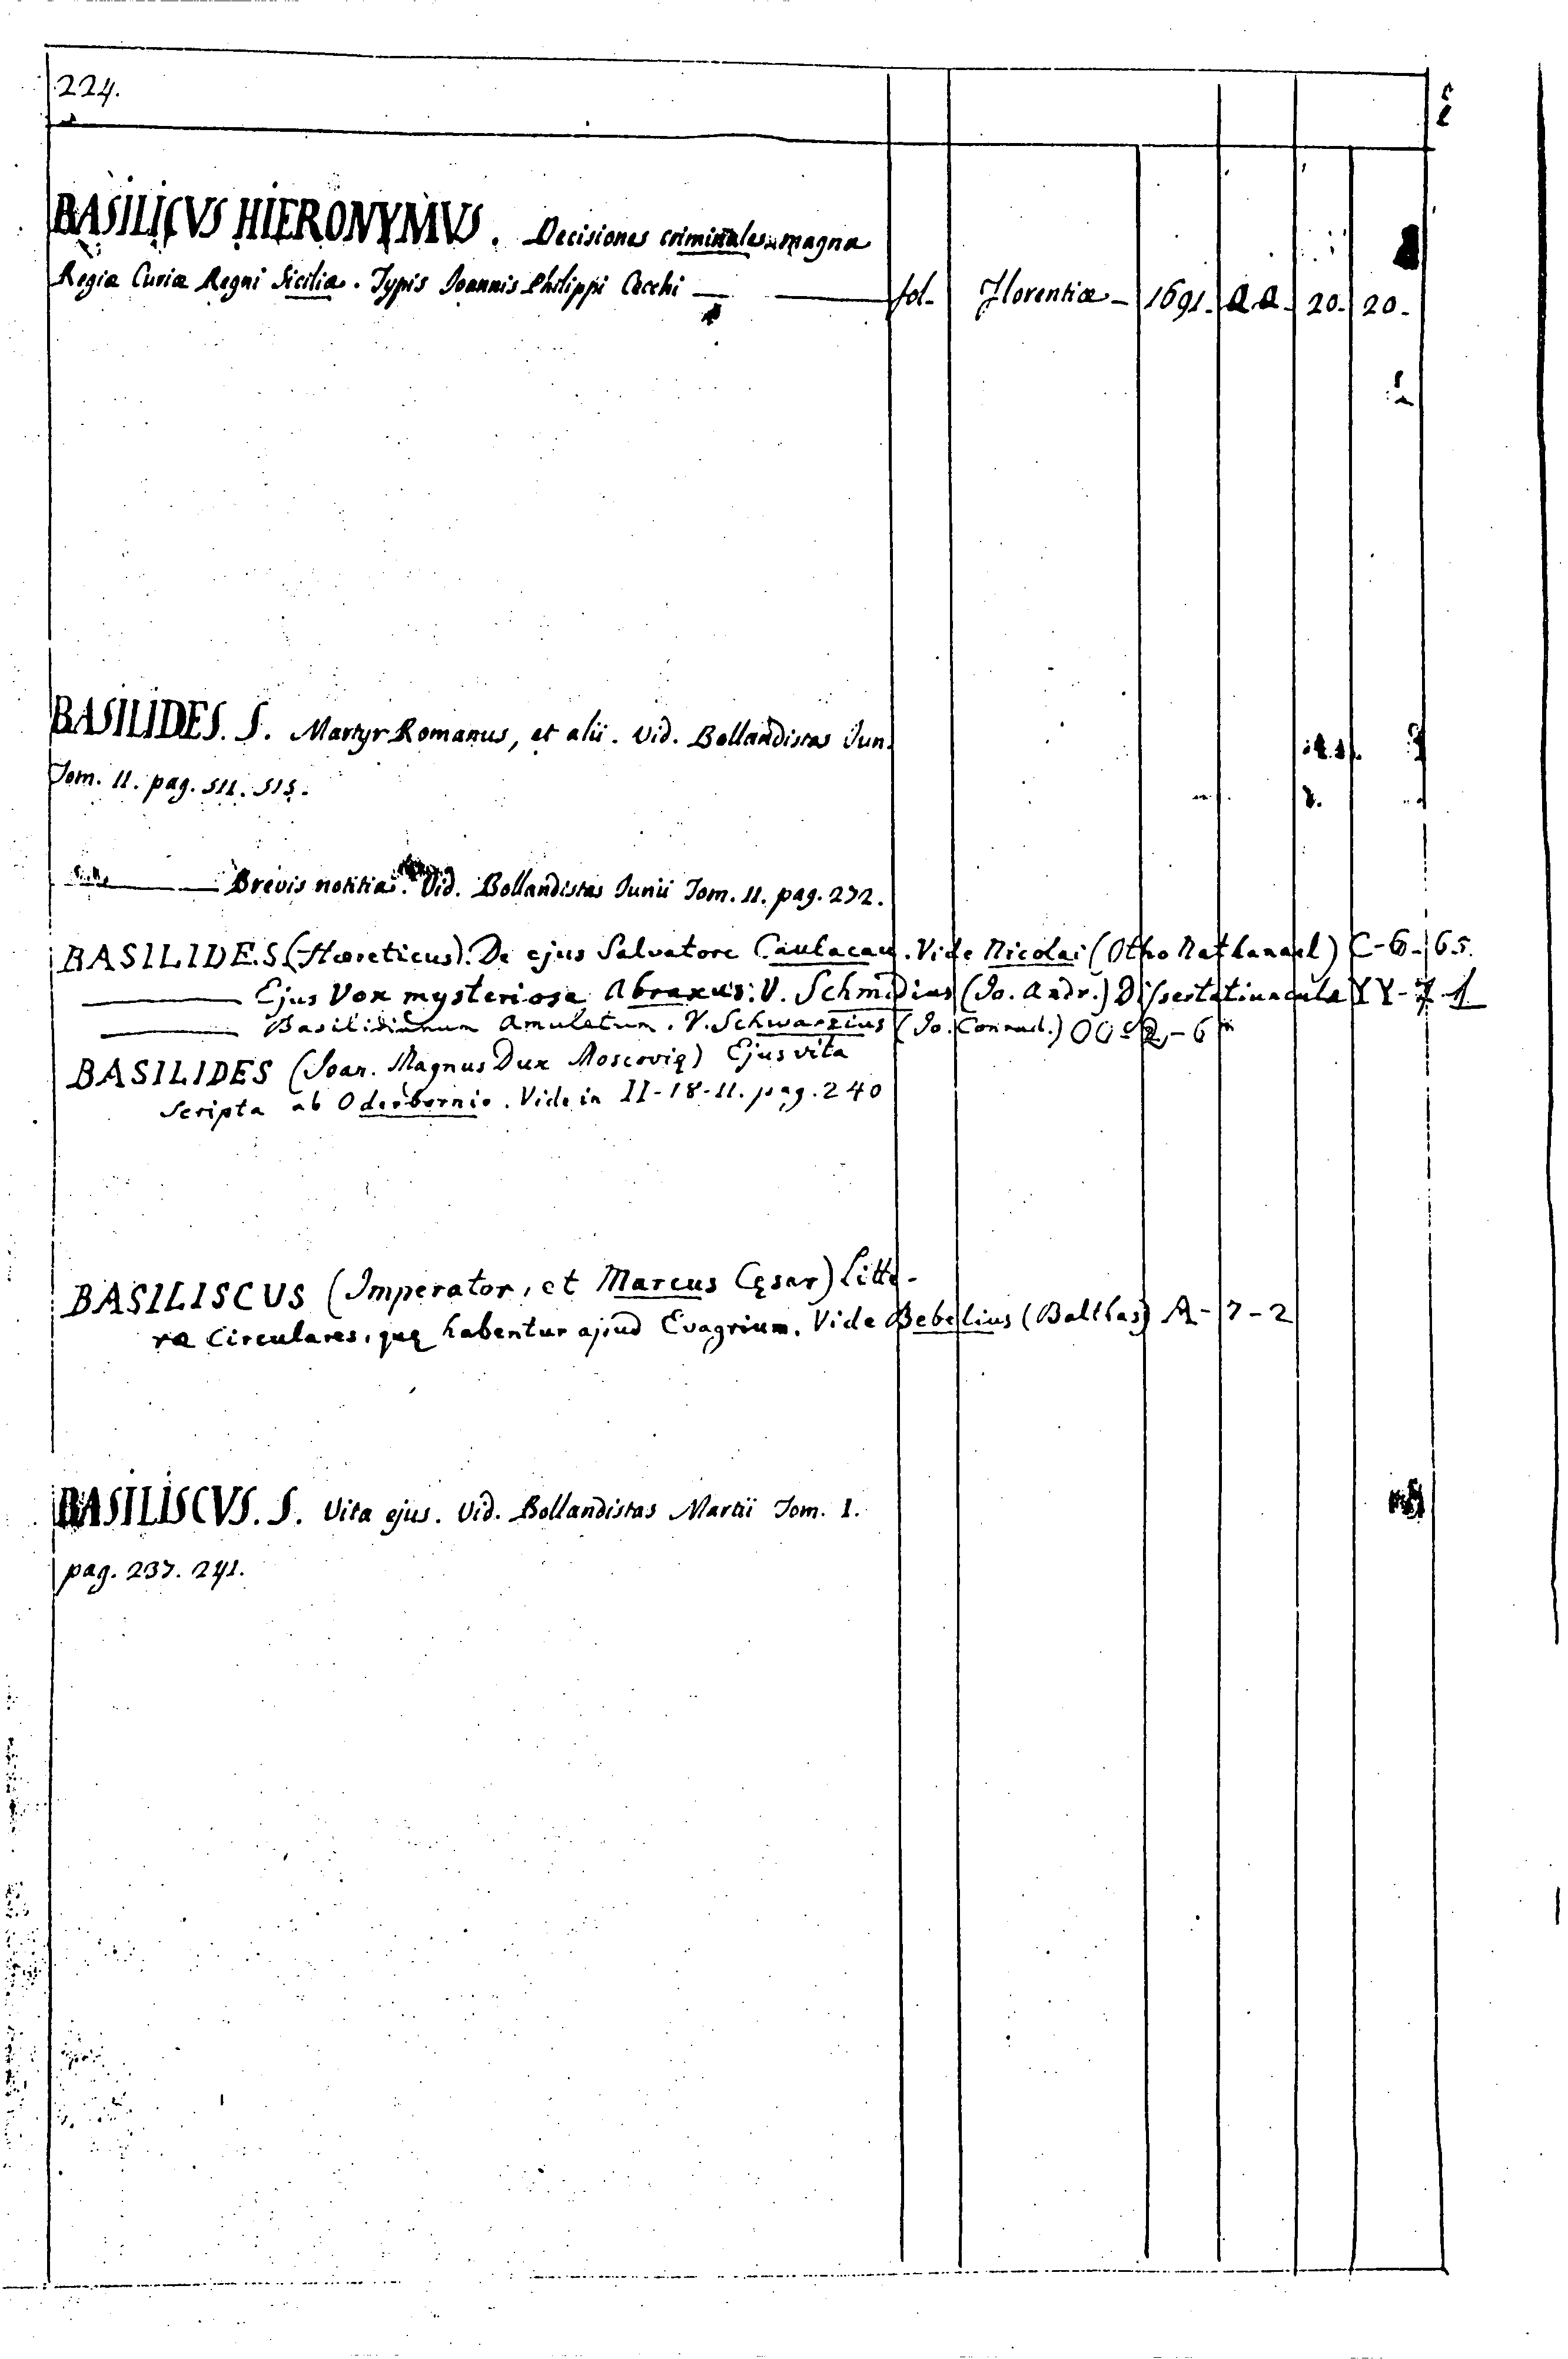 224.
BASILICVS HIERONYMVS. Decisiones criminales magnæ
Regiæ Curiæ Regni Siciliæ. Typis Joannis Philippi Cecchi — fol. Florentiæ - 1691. 20. 20.
BASILIDES. S. Martyr Romanus, et alii. Vid. Bollandistas Jun.
Tom. 11. pag. 511. 515.
Brevis notitia. Vid. Bollandistas Junii Tom. 11. pag. 232.
BASILIDES (Hæreticus). De ejus Salvatore Caulacau. Vide Nicolai (Otho Nathanael) C-6-65.
Ejus Vox mysteriosa Abraxus: V. Schmidius (Jo. Andr.) YY-7-1
Basilidianum Amuletum. V. Schwarzius (Jo. Conrad.)
BASILIDES (Joan. Magnus Dux Moscovię) Ejus vita
Scripta ab Oderbornio. Vide in II-18-11. pag. 240
BASILISCUS (Imperator, et Marcus Cęsar) Litte-
ræ Circulares, quę habentur apud Evagrium. Vide Bebelius (Balthas) A-7-2
BASILISCVS. S. Vita ejus. Vid. Bollandistas Martii Tom. 1.
pag. 237. 241.